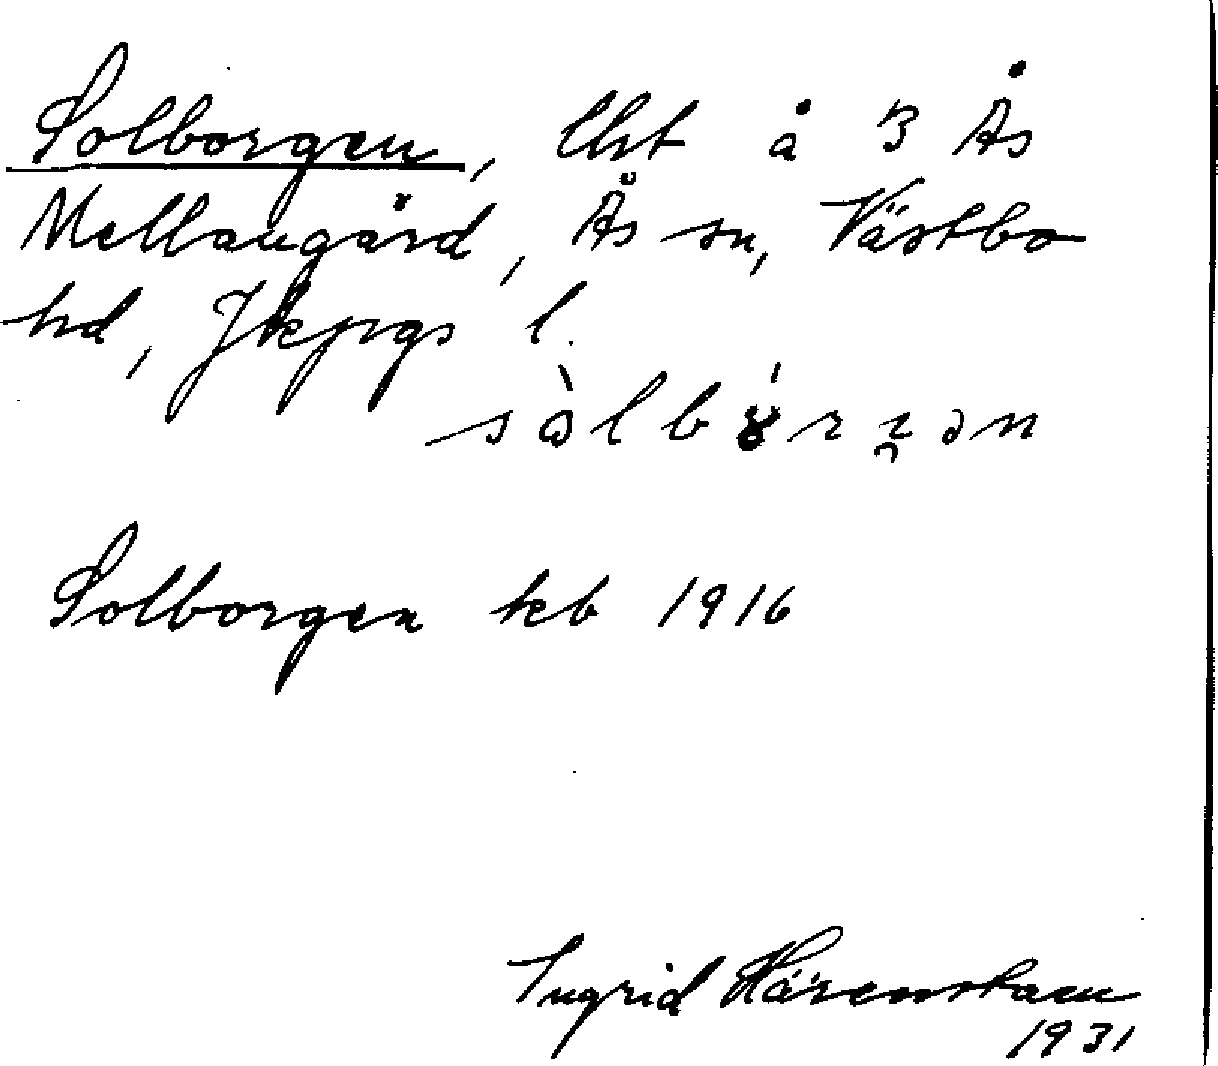 Solborgen, lht å B Ås
Mellangård, Ås sn, Västbo
hd, Jkpgs l.
Solborgen teb 1916
Ingrid Härenstam
1931